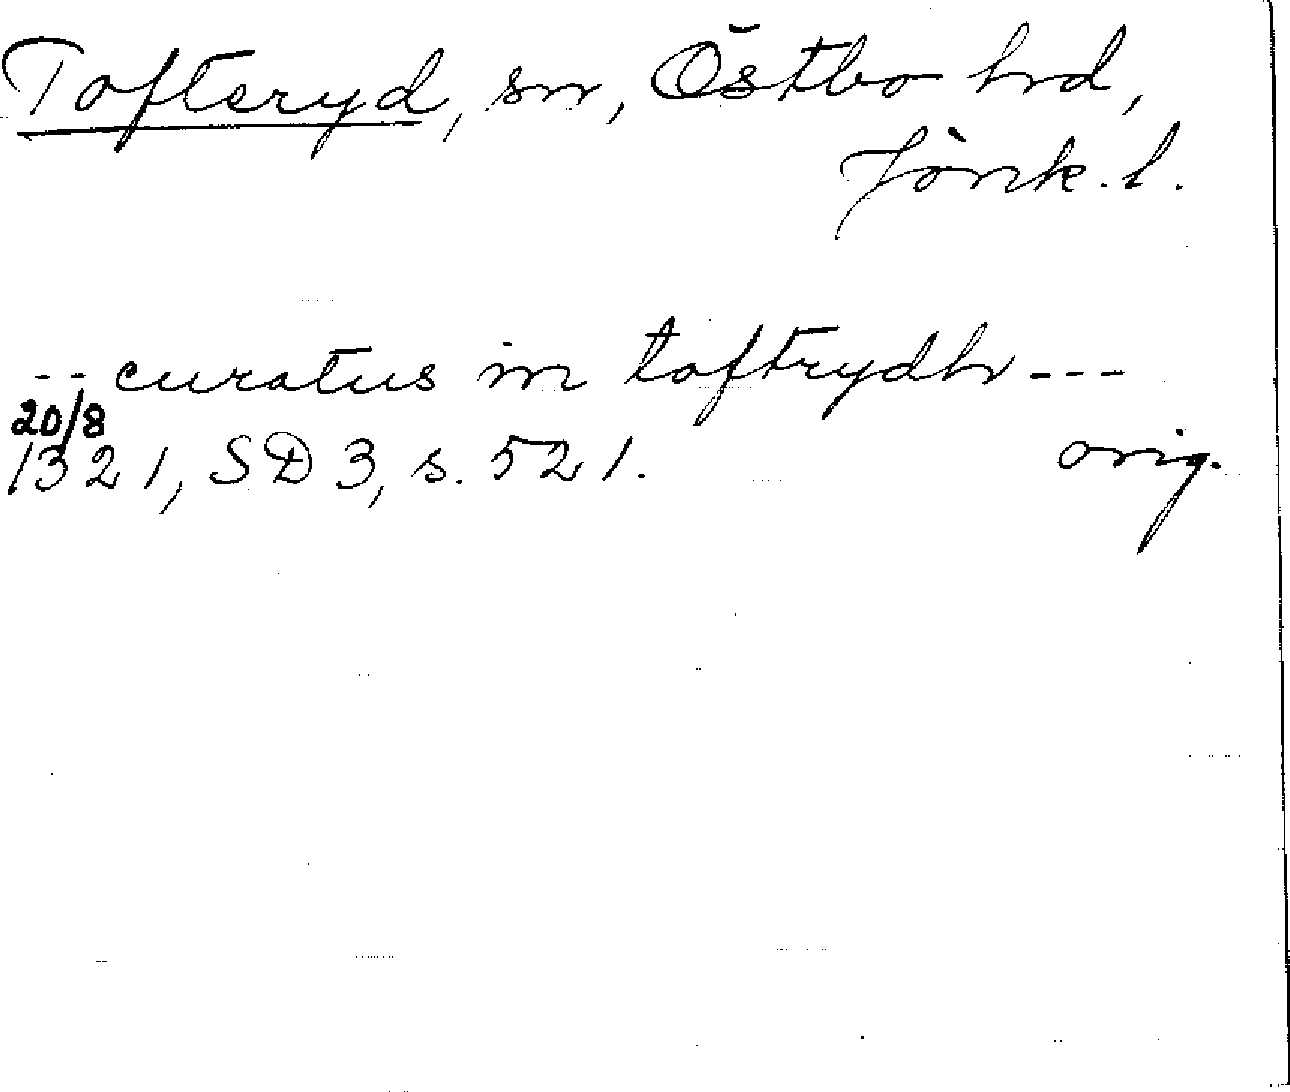 Tofteryd, sn, Östbo hrd,
Jönk. l.
-- curatus in toftrydh ---
20/8
1321, SD 3, s. 521. orig.